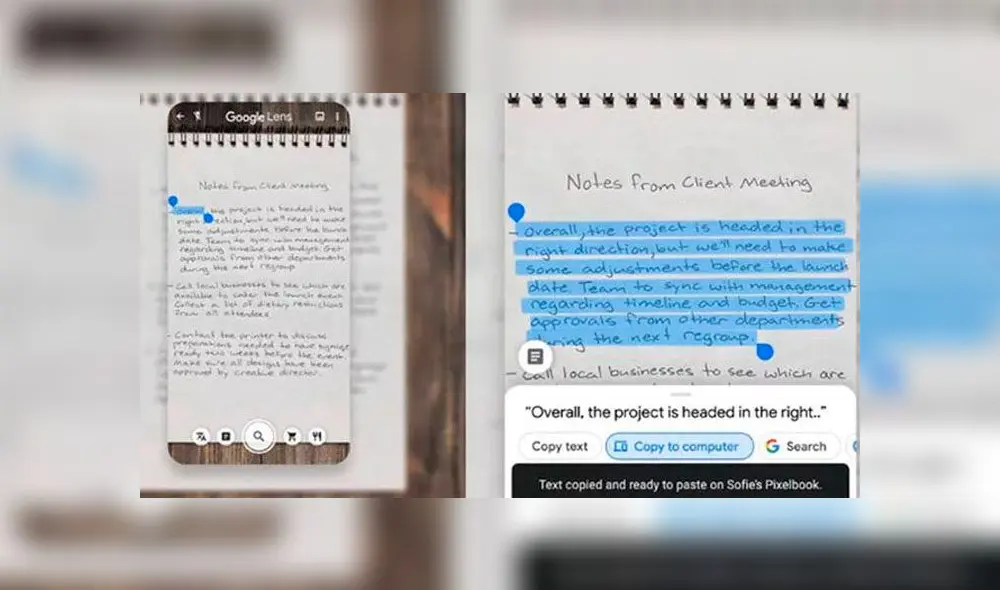 Google Lens
Notes from Client Meeting
- Overall, the project is headed in the
right direction, but we'll need to make
some adjustments before the launch
date. Team to sync with management
regarding timeline and budget. Get
approvals from other departments
during the next regroup.
- Call local businesses to see which are
available to cater the launch event.
Collect a list of dietary restrictions
from all attendees
- Contact the printer to discuss
preparations needed to have signage
ready two weeks before the event.
Make sure all designs have been
approved by creative director.
Notes from Client Meeting
- Overall, the project is headed in the
right direction, but we'll need to make
some adjustments before the launch
date. Team to sync with management
regarding timeline and budget. Get
approvals from other departments
during the next regroup.
- Call local businesses to see which are
“Overall, the project is headed in the right..”
Copy text
Copy to computer
G Search
Text copied and ready to paste on Sofie's Pixelbook.